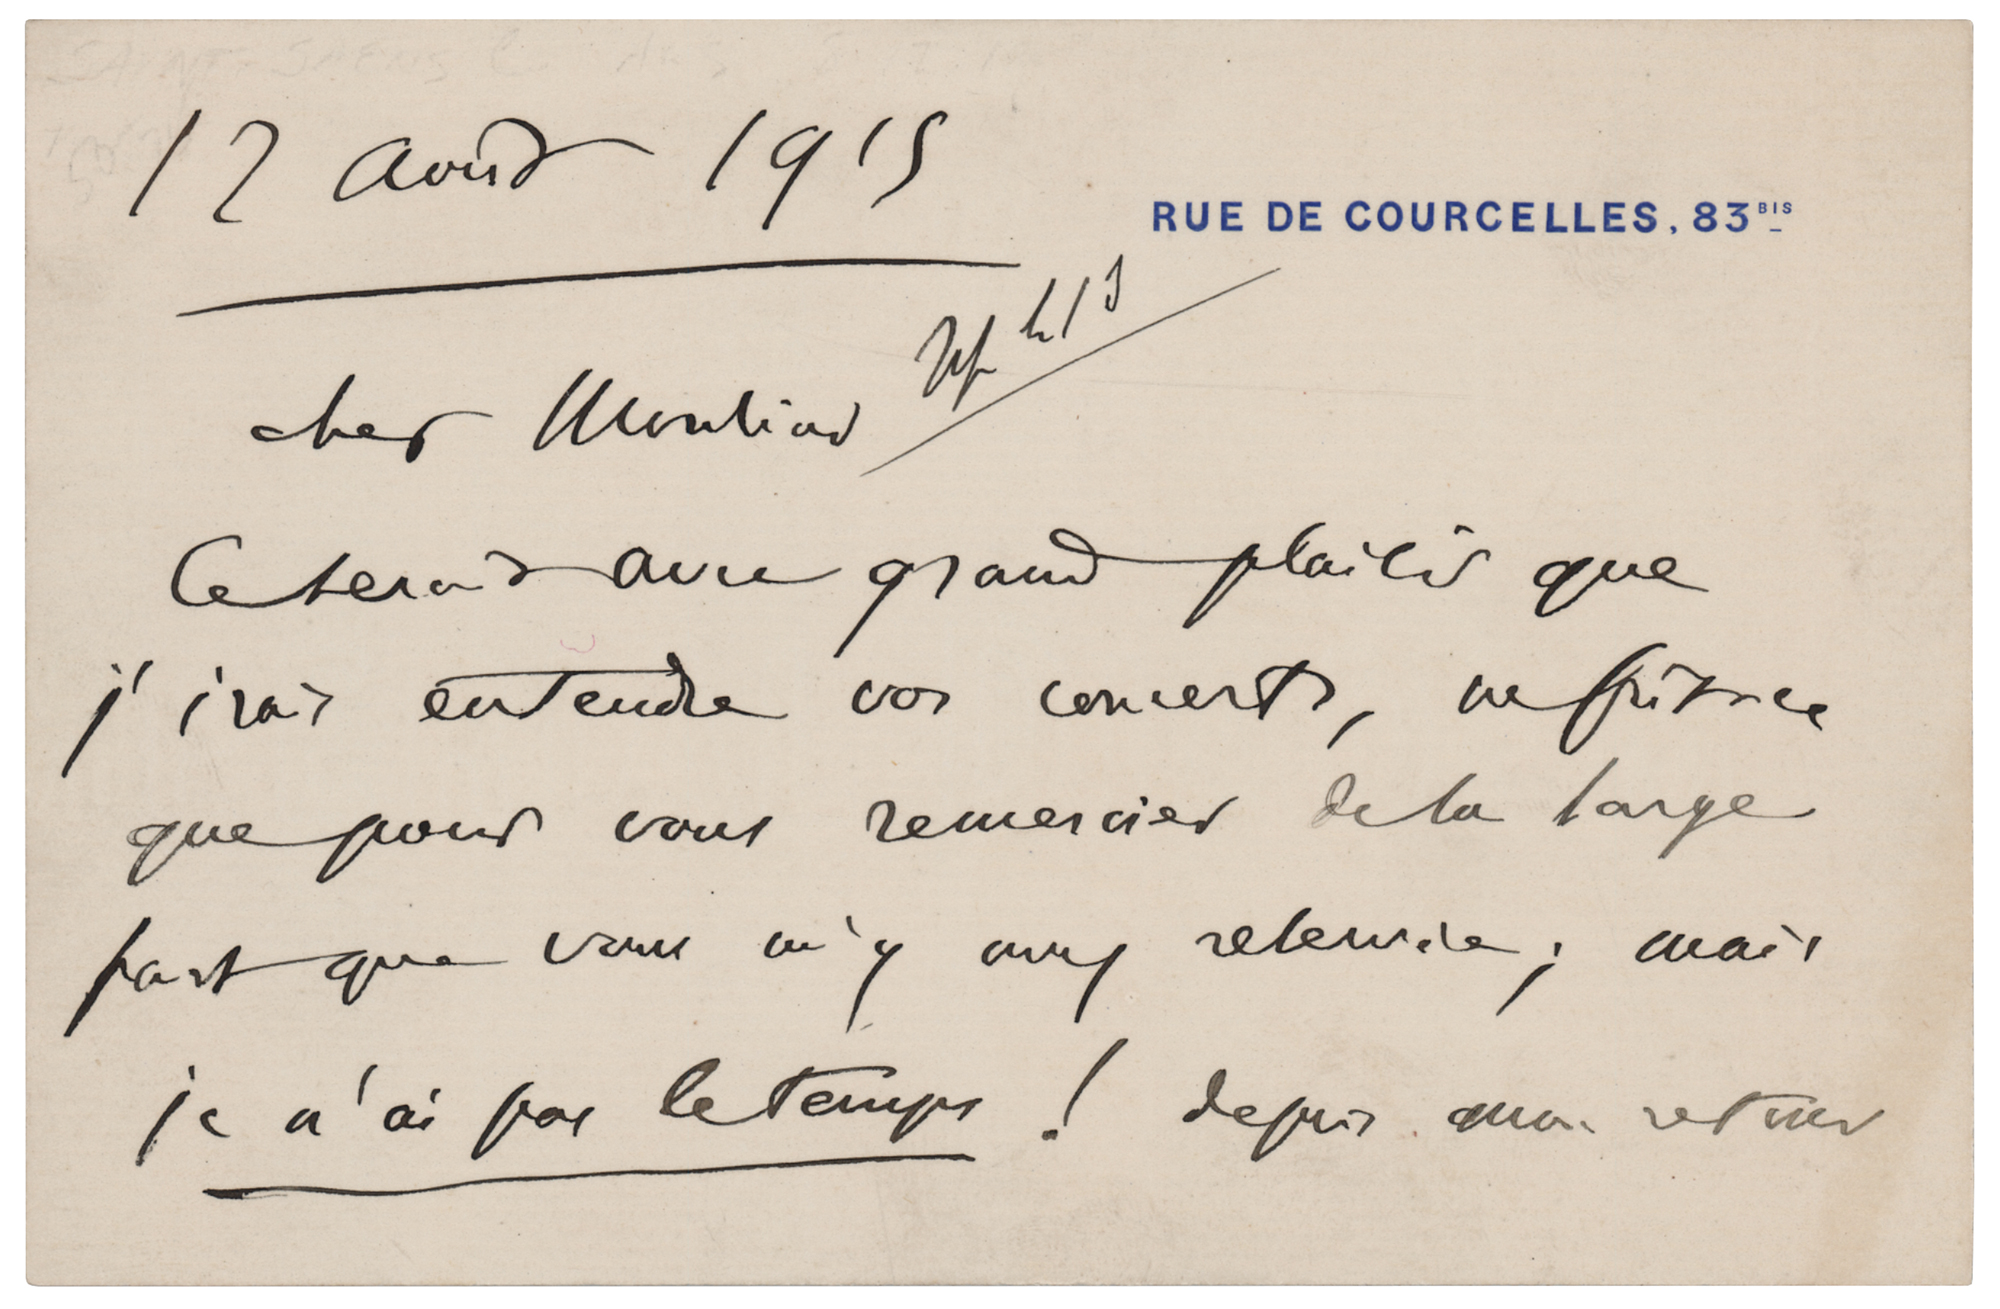 12 Août 1915
RUE DE COURCELLES, 83 BIS
cher
Ce serait avec grand plaisir que
j'irais entendre vos concerts, ne fût-ce
que pour vous remercier de la large
part que vous m'y avez réservée; mais
je n'ai pas le temps! depuis mon retour